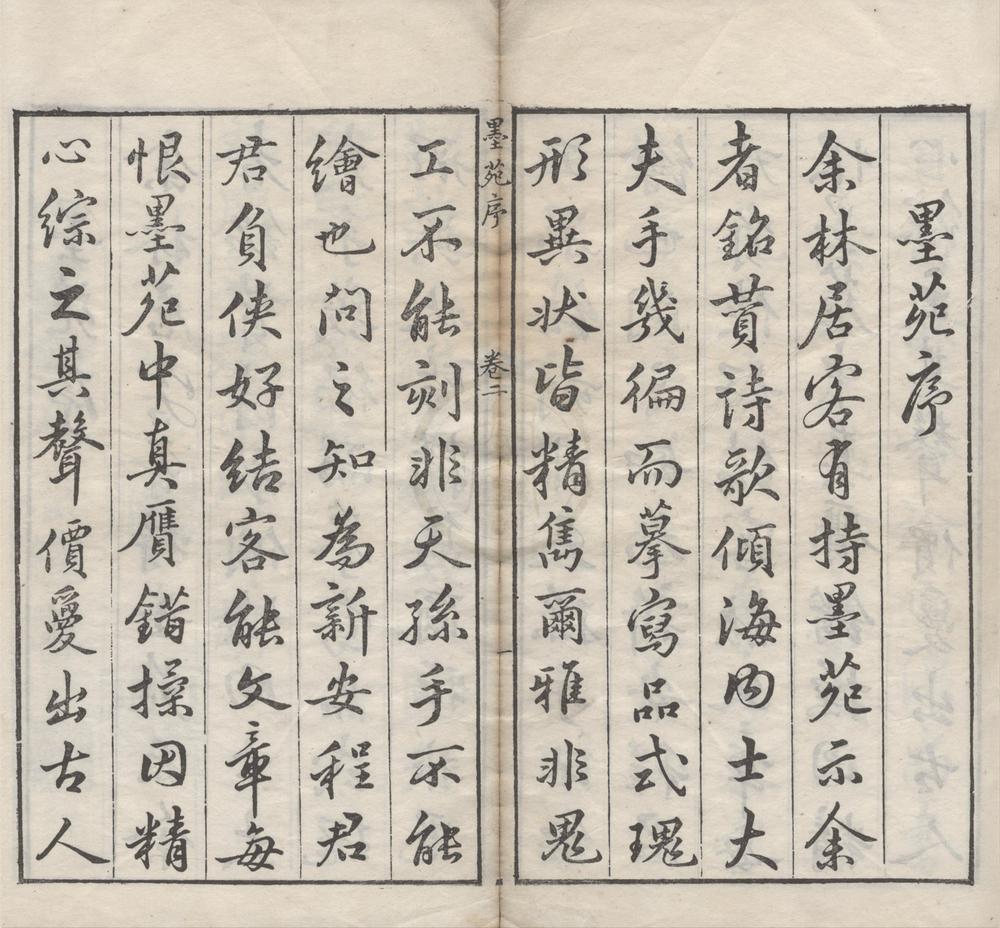 墨苑序
余林居客有持墨苑示余
者銘賛詩歌傾海内士大
夫手幾徧而摹寫品式瑰
形異狀皆精雋爾雅非鬼
墨苑序 卷二 一
工不能刻非天孫手不能
繪也问之知為新安程君
君負俠好結客能文章每
恨墨苑中真贋錯揉因精
心綜之其聲價爰出古人